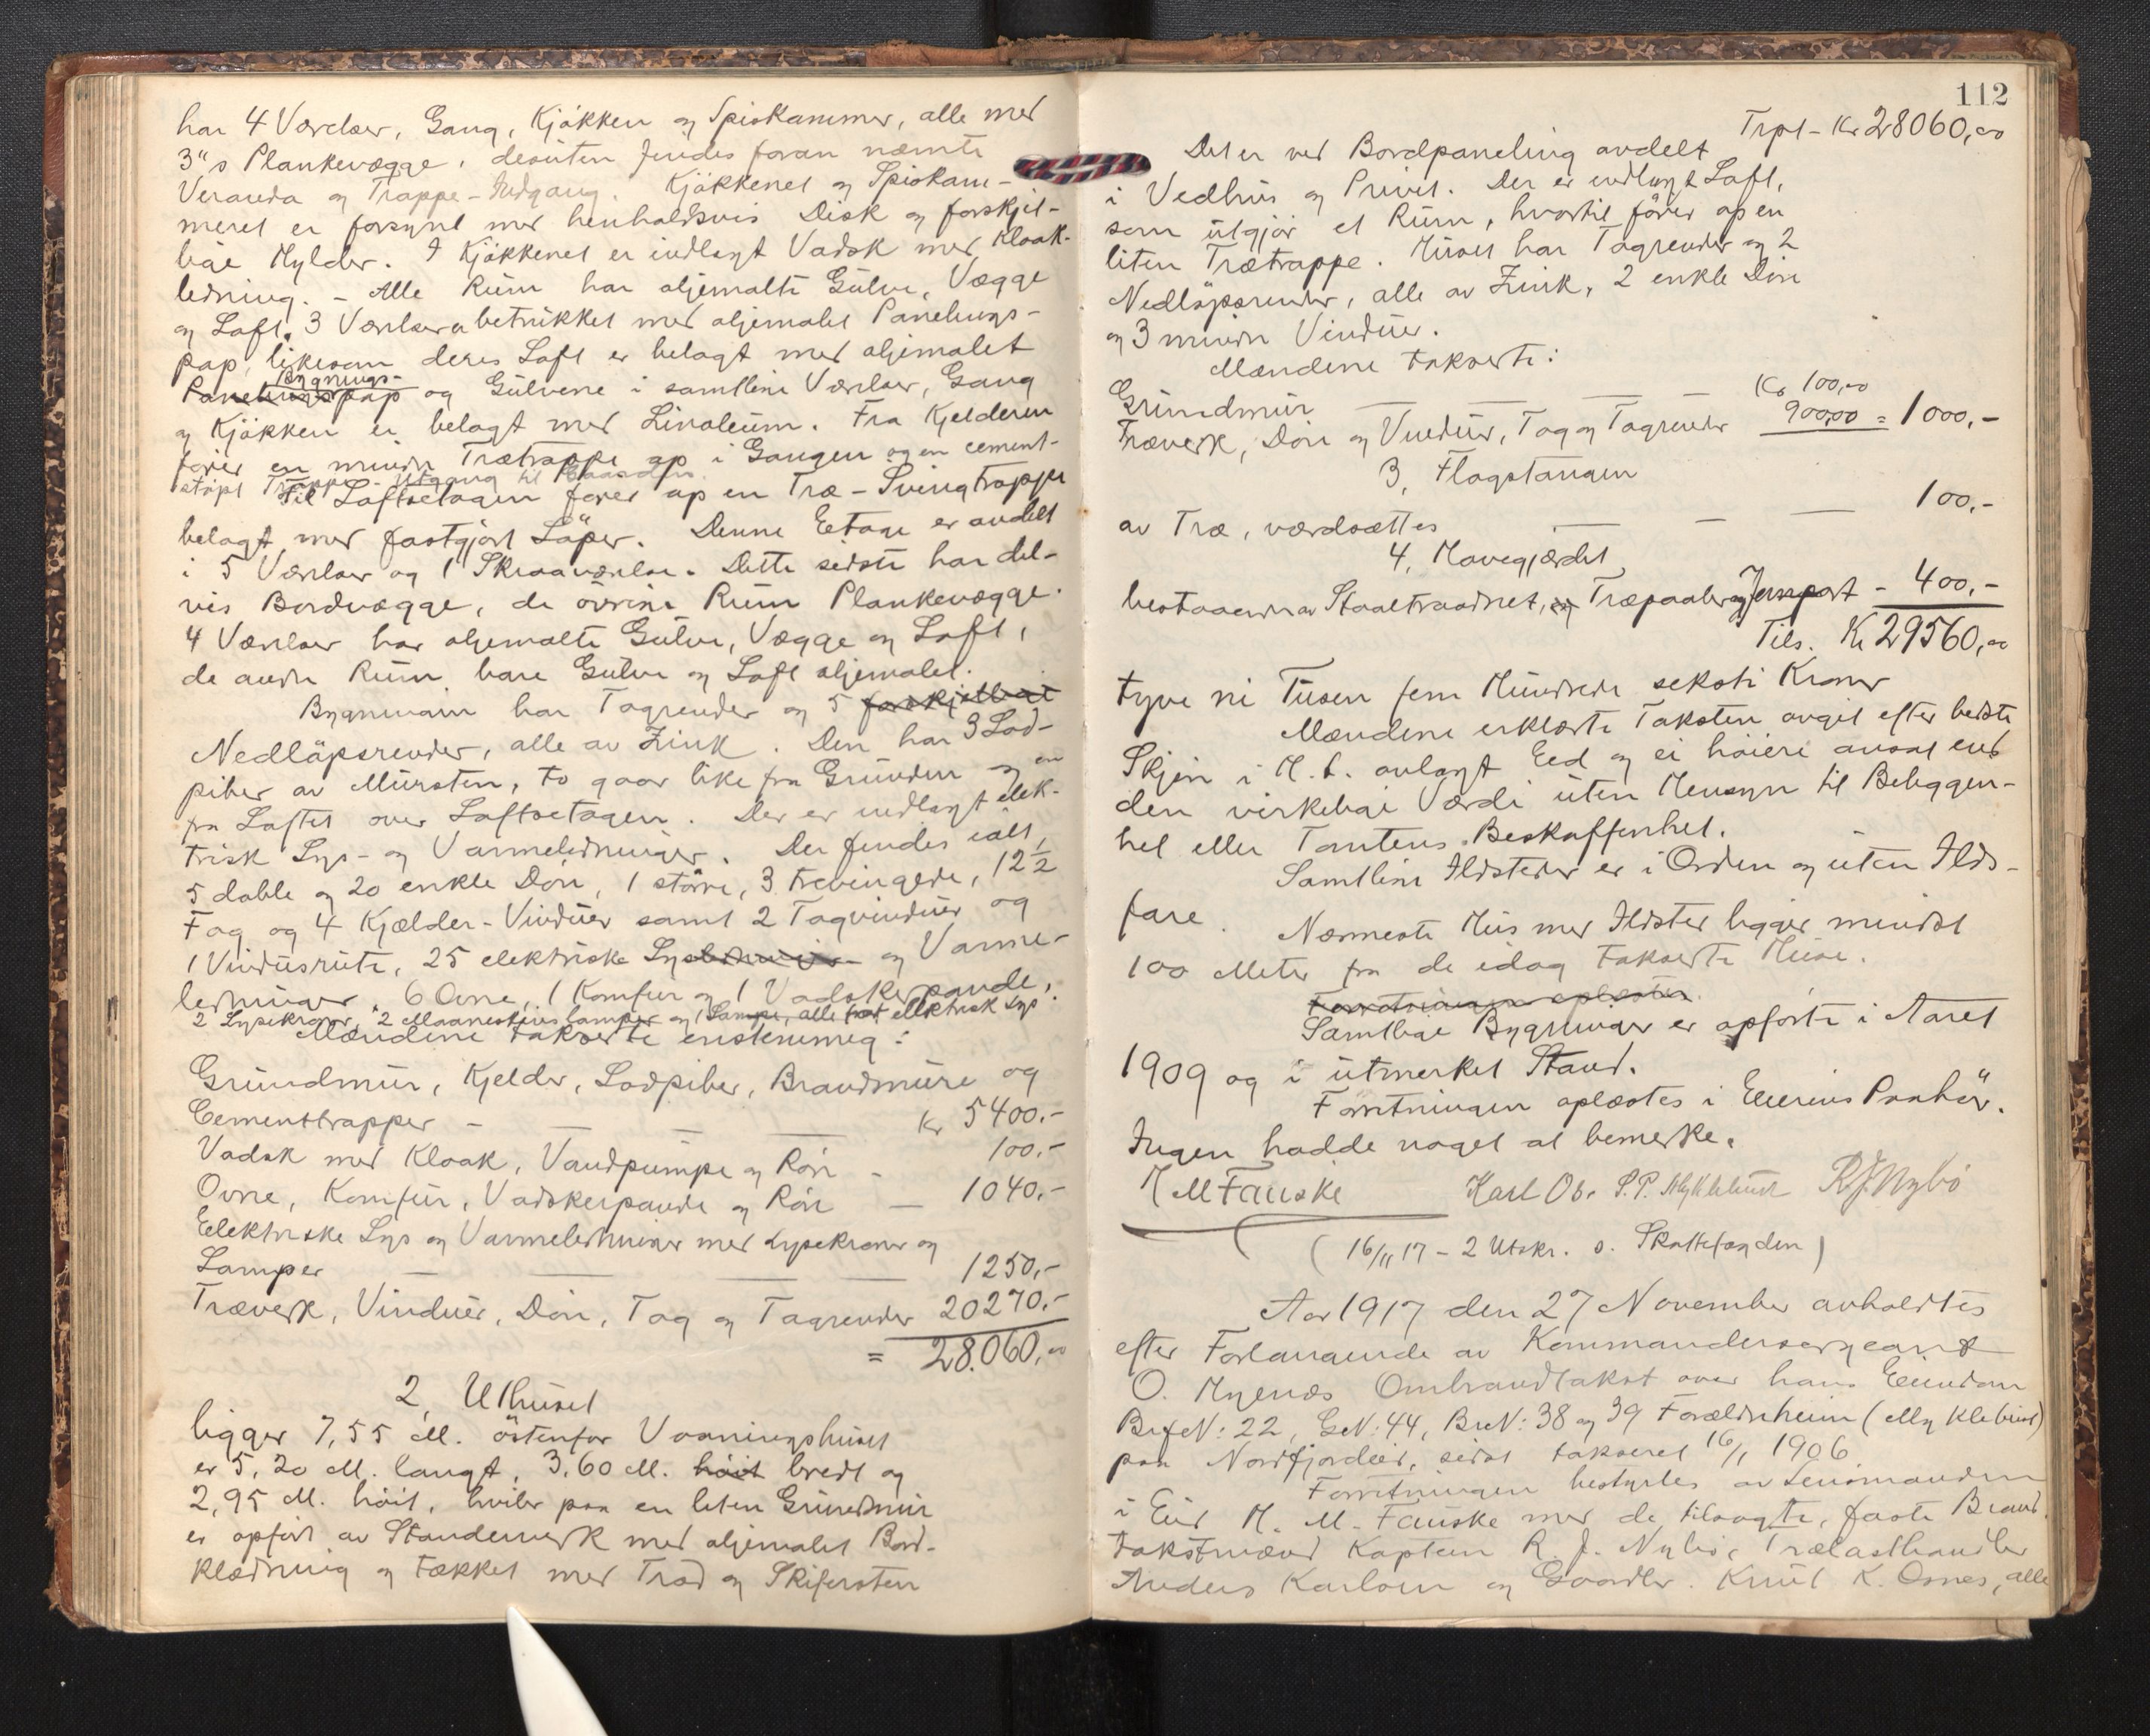 har 4 Værelser, Gang, Kjøkken og Spiskammer, alle med
3"s Plankevægge, desuten findes foran nævnte
Veranda og Trappe-Indgang. Kjøkkenet og Spiskam-
meret er forsynt med henholdsvis Disk og forskjel-
lige Hylder. I Kjøkkenet er indlagt Vadsk med Kloak-
ledning. - Alle Rum har oljemalte Gulve, Vægge
og Loft. 3 Værelser er betrukket med oljemalet Panelings-
pap, likesom deres Loft er belagt med oljemalet
Bygnings-
Panelingspap og Gulvene i samtlige Værelser, Gang
og Kjøkken er belagt med Linoleum. Fra Kjelderen
fører en mindre Trætrappe op i Gangen og en cement-
støpt Trappe - Utgang til Gaarden.
Til Loftsetagen fører op en Træ-Svingtrappe
belagt med fastgjort Løper. Denne Etage er avdelt
i 5 Værelser og 1 Skraaværelse. Dette sidste har del-
vis Bordvægge, de øvrige Rum Plankevægge.
4 Værelser har oljemalte Gulve, Vægge og Loft,
de andre Rum bare Gulve og Loft oljemalet.
Bygningen har Tagrender og 5 forskjellige
Nedløpsrender, alle av Zink. Den har 3 Lod-
piber av Mursten, to gaar like fra Grunden og en
fra Loftet over Loftsetagen. Der er indlagt elek-
trisk Lys- og Varmeledninger. Der findes ialt,
5 doble og 20 enkle Døre, 1 større, 3 trevingede, 12 1/2
Fag og 4 Kjælder-Vinduer samt 2 Tagvinduer og
1 Vindusrute, 25 elektriske Lysledninger og Varme-
ledninger, 6 Ovne, 1 Komfur og 1 Vadskerpande,
2 Lysekroner, 2 Maaneskinslamper og Lampe, alle for elektrisk Lys.
Mændene takserte enstemmig:
Grundmur, Kjelder, Lodpiber, Brandmure og
Cementtrapper - — — kr 5400.-
Vadsk med Kloak, Vandpumpe og Rør - 100.-
Ovne, Komfur, Vadskerpande og Rør — 1040.-
Elektriske Lys og Varmeledninger med Lysekroner og
Lamper — — — — 1250.-
Træverk, Vinduer, Døre, Tag og Tagrender 20270.-
= 28.060,00
2, Uthuset
ligger 7,55 M. østenfor Vaaningshuset
er 5,20 M. langt, 3,60 M. høit bredt og
2,95 M. høit, hviler paa en liten Grundmur
er opført av Standerverk med oljemalet Bord-
klædning og tækket med Trod og Skifersten
112
Trpt - Kr 28060,00
Det er ved Bordpaneling avdelt
i Vedhus og Privet. Der er indlagt Loft,
som utgjør et Rum, hvortil fører op en
liten Trætrappe. Huset har Tagrender og 2
Nedløpsrender, alle av Zink, 2 enkle Døre
og 3 mindre Vinduer.
Mændene takserte:
Grundmur — — — Kr 100,00
Træverk, Døre og Vinduer, Tag og Tagrender 900,00 = 1000,-
3, Flagstangen
av Træ, værdsættes — — — 100,-
4, Havegjærdet
bestaaende av Staaltraadnet, og Træpæler og Jernport - 400,-
Tils. Kr 29560,00
tyve ni Tusen fem Hundrede seksti Kroner
Mændene erklærte Taksten avgit efter bedste
Skjøn i H. t. avlagt Eed og ei høiere ansat end
den virkelige Værdi uten Hensyn til Beliggen-
het eller Tomtens Beskaffenhet.
Samtlige Ildsteder er i Orden og uten Ilds-
fare.
Nærmeste Hus med Ildsted ligger mindst
100 Meter fra de idag takserte Huse.
Forretningen oplæstes
Samtlige Bygninger er opførte i Aaret
1909 og i utmerket Stand.
Forretningen oplæstes i Eierens Paahør.
Ingen hadde noget at bemerke.
H M Fauske Karl Os. S. P. Myklebust R J Nybø
(16/11 17 - 2 Utskr. s. Skattefogden)
Aar 1917 den 27 November avholdtes
efter Forlangende av Kommandersergeant
O. Hyenæs Ombrandtakst over hans Eiendom
BrfN: 22, GN: 44, BrN: 38 og 39 Forældreheim (Myklebust)
paa Nordfjordeid, sidst takseret 16/1 1906.
Forretningen bestyrtes av Lensmanden
i Eid H. M. Fauske med de tilsagte, faste Brand-
takstmænd Kaptein R. J. Nybø, Trælasthandler
Anders Karlsen og Gaardbr. Knut K. Osnes, alle